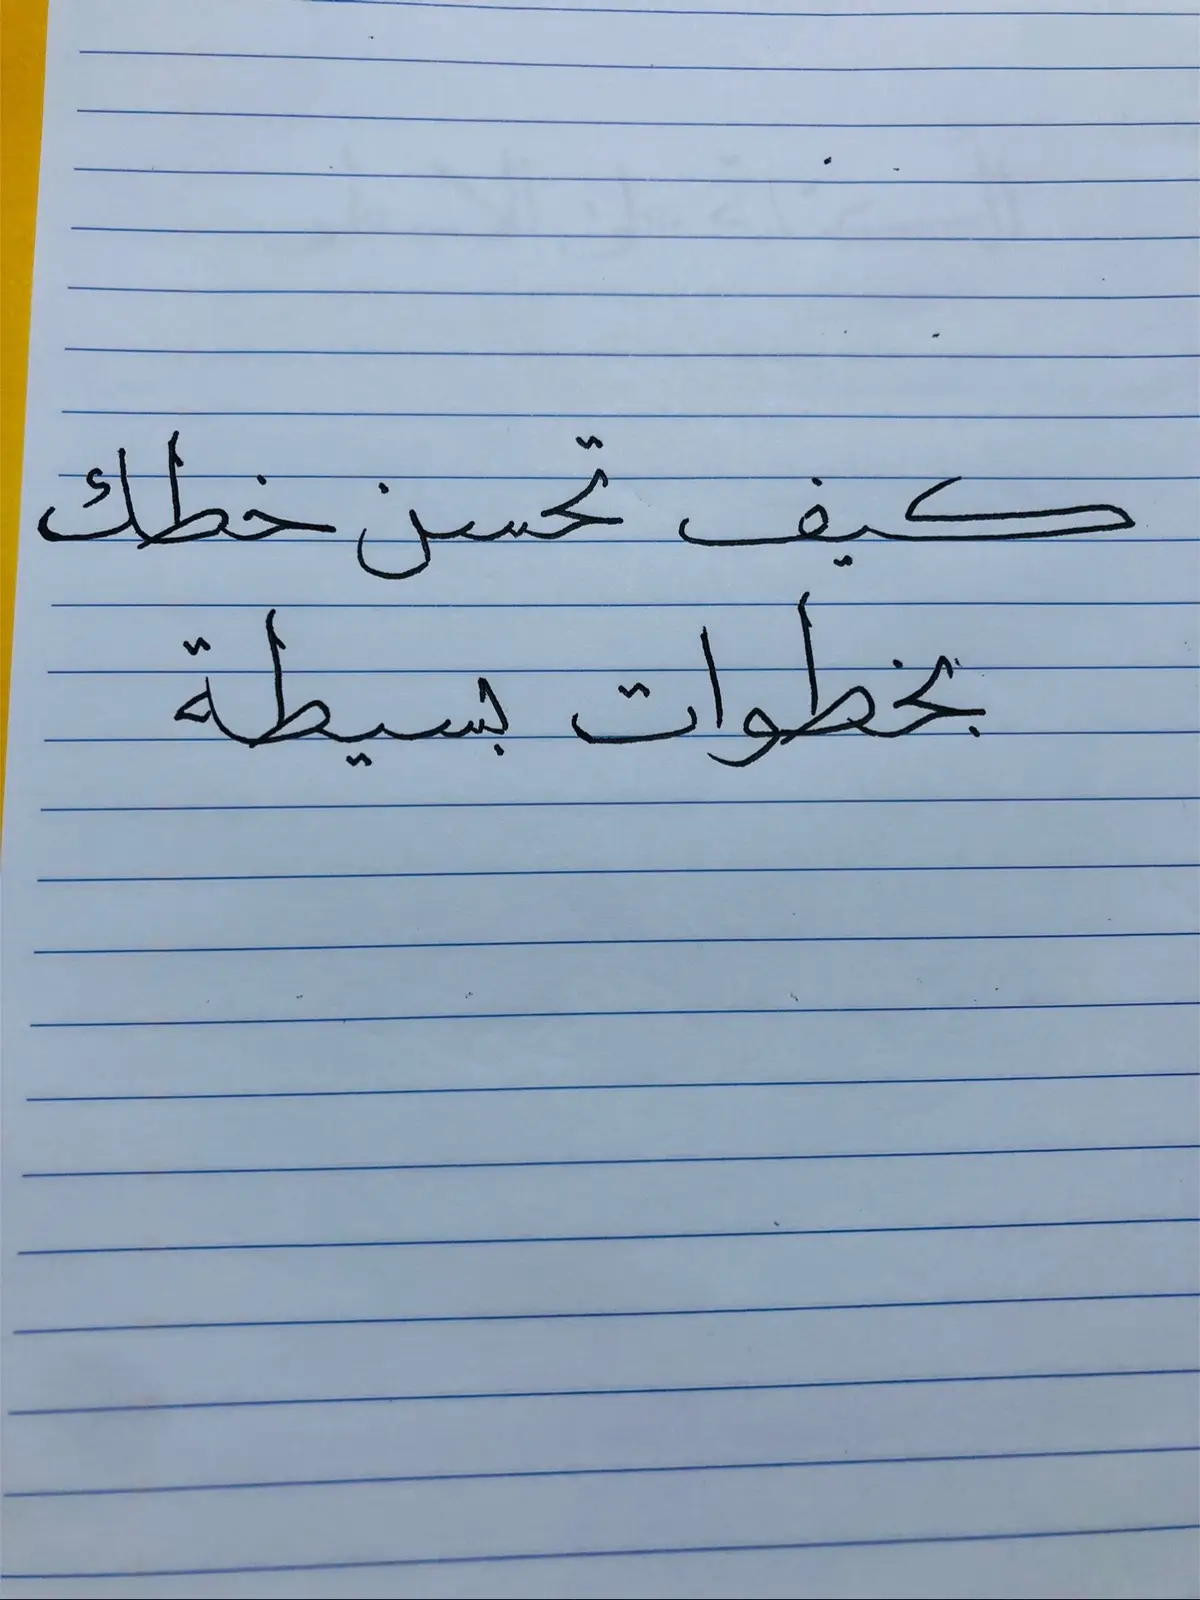 كيف تحسن خطك
بخطوات بسيطة